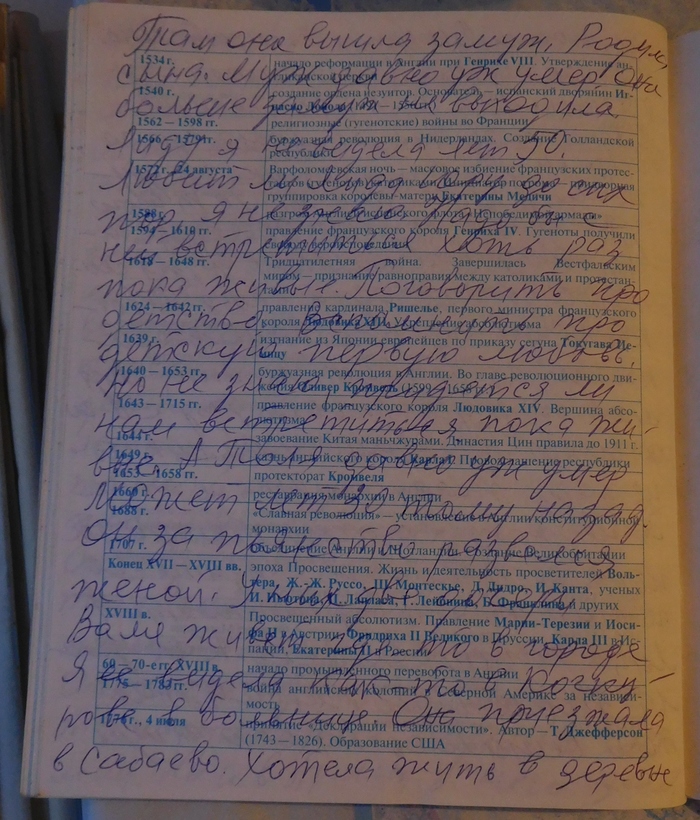 Там она вышла замуж, Родила
1534 г. начало реформации в Англии при Генрихе VIII. Утверждение ан-
сына. Муж давно уж умер она
1540 г. создание ордена иезуитов. Основатель — испанский дворянин Иг-
больше замуж не выходила.
1562 — 1598 гг. религиозные (гугенотские) войны во Франции
буржуазная революция в Нидерландах. Создание Голландской
республики
я не видела лет 50.
1572 г., 24 августа Варфоломеевская ночь — массовое избиение французских протес-
группировка королевы-матери Екатерины Медичи
я не знаю
1594 — 1610 гг. правление французского короля Генриха IV. Гугеноты получили
ней встретиться хоть раз
1618 — 1648 гг. Тридцатилетняя война. Завершилась Вестфальским
миром — признание равноправия между католиками и протестан-
пока живы. Поговорить про
1624 — 1642 гг. правление кардинала Ришелье, первого министра французского
короля Людовика XIII. Укрепление абсолютизма
детство вспомнить про
1639 г. изгнание из Японии европейцев по приказу сегуна Токугава Ие-
мицу
детскую первую любовь.
1640 — 1653 гг. буржуазная революция в Англии. Во главе революционного дви-
жения Оливер Кромвель (1599 — 1658)
но не знаю, придется ли
1643 — 1715 гг. правление французского короля Людовика XIV. Вершина абсо-
нам встретиться пока жи-
1644 г. завоевание Китая маньчжурами. Династия Цин правила до 1911 г.
1649 г. казнь английского короля Карла I. Провозглашение республики
вы. А Толя давно уж умер
1653 — 1658 гг. протекторат Кромвеля
1660 г. реставрация монархии в Англии
может лет 30 тому назад.
1688 г. «Славная революция» — установление в Англии конституционной
монархии
Он за пьянство развелся
1707 г. объединение Англии и Шотландии — создание Великобритании
Конец XVII — XVIII вв. эпоха Просвещения. Жизнь и деятельность просветителей Воль-
тера, Ж.-Ж. Руссо, Ш. Монтескье, Д. Дидро, И. Канта, ученых
женой.
И. Ньютона, П. Лапласа, Г. Лейбница, Б. Франклина и других
XVIII в. Просвещенный абсолютизм. Правление Марии-Терезии и Иоси-
Валя живет где то в городе
фа II в Австрии, Фридриха II Великого в Пруссии, Карла III в Ис-
пании, Екатерины II в России
60 — 70-е гг. XVIII в. начало промышленного переворота в Англии
Я ее видела как то в Кочку-
1775 — 1783 гг. война английских колоний в Северной Америке за независи-
мость
рове в больнице Она приезжала
1776 г., 4 июля принятие «Декларации независимости». Автор — Т. Джефферсон
(1743 — 1826). Образование США
в Сабаево. Хотела жить в деревне